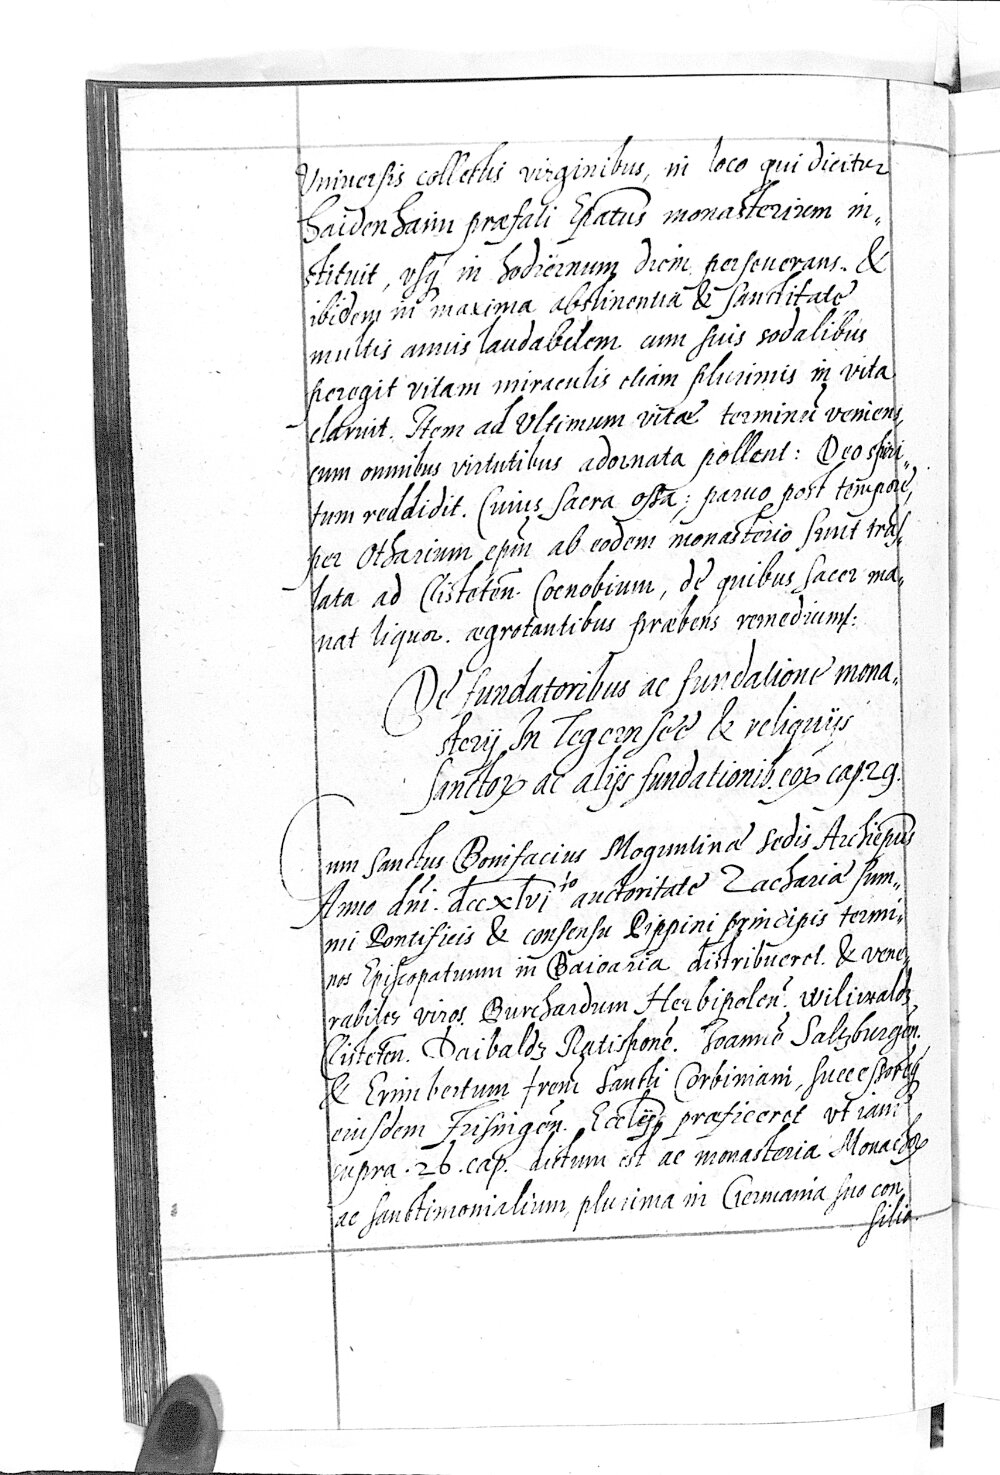 Vniuersis collectis virginibus, in loco qui dicitur
haidenhaim præfati Epatus monasterium in„
stituit, vsq in hodiernum diem perseuerans. &
ibidem in maxima abstinentia & sanctitate
multis annis laudabilem cum suis sodalibus
peregit vitam miraculis etiam plurimis in vita
claruit. Item ad Vltimum vitæ terminū veniens,
cum omnibus virtutibus adornata pollent: Deo spiri„
tum reddidit. Cuius sacra ossa; paruo post tempore,
per Otharium epm̄ ab eodem monasterio sunt trās„
lata ad Clisteten̄. Coenobium, de quibus sacer ma„
nat liquor. ægrotantibus præbens remedium:
De fundatoribus ac fundatione mona„
sterij In Tegernsee & reliquijs
sanctoꝝ ac alijs fundationib. eoꝝ cap. 29.
Cum sanctus Bonifacius Moguntinæ sedis Archiepus
Anno dn̄i. dccxlvi to auctoritate Zachariæ sum„
mi Pontificis & consensu Pippini principis termi„
nos Episcopatuum in Baioaria distribueret. & vene„
rabiles viros Burchardum Herbipolen̄. wiliwaldꝫ
Clisteten. Daibaldꝫ Ratisponē. Joannē Salzburgēn.
& Erimbertum frēm sancti Corbiniani, successorēq
eiusdem Frisingēn. Ecclijs præficeret vt iam
supra. 26. cap. dictum est ac monasteria Monachoꝝ
ac sanctimonialium, plurima in Germania suo con
silio.